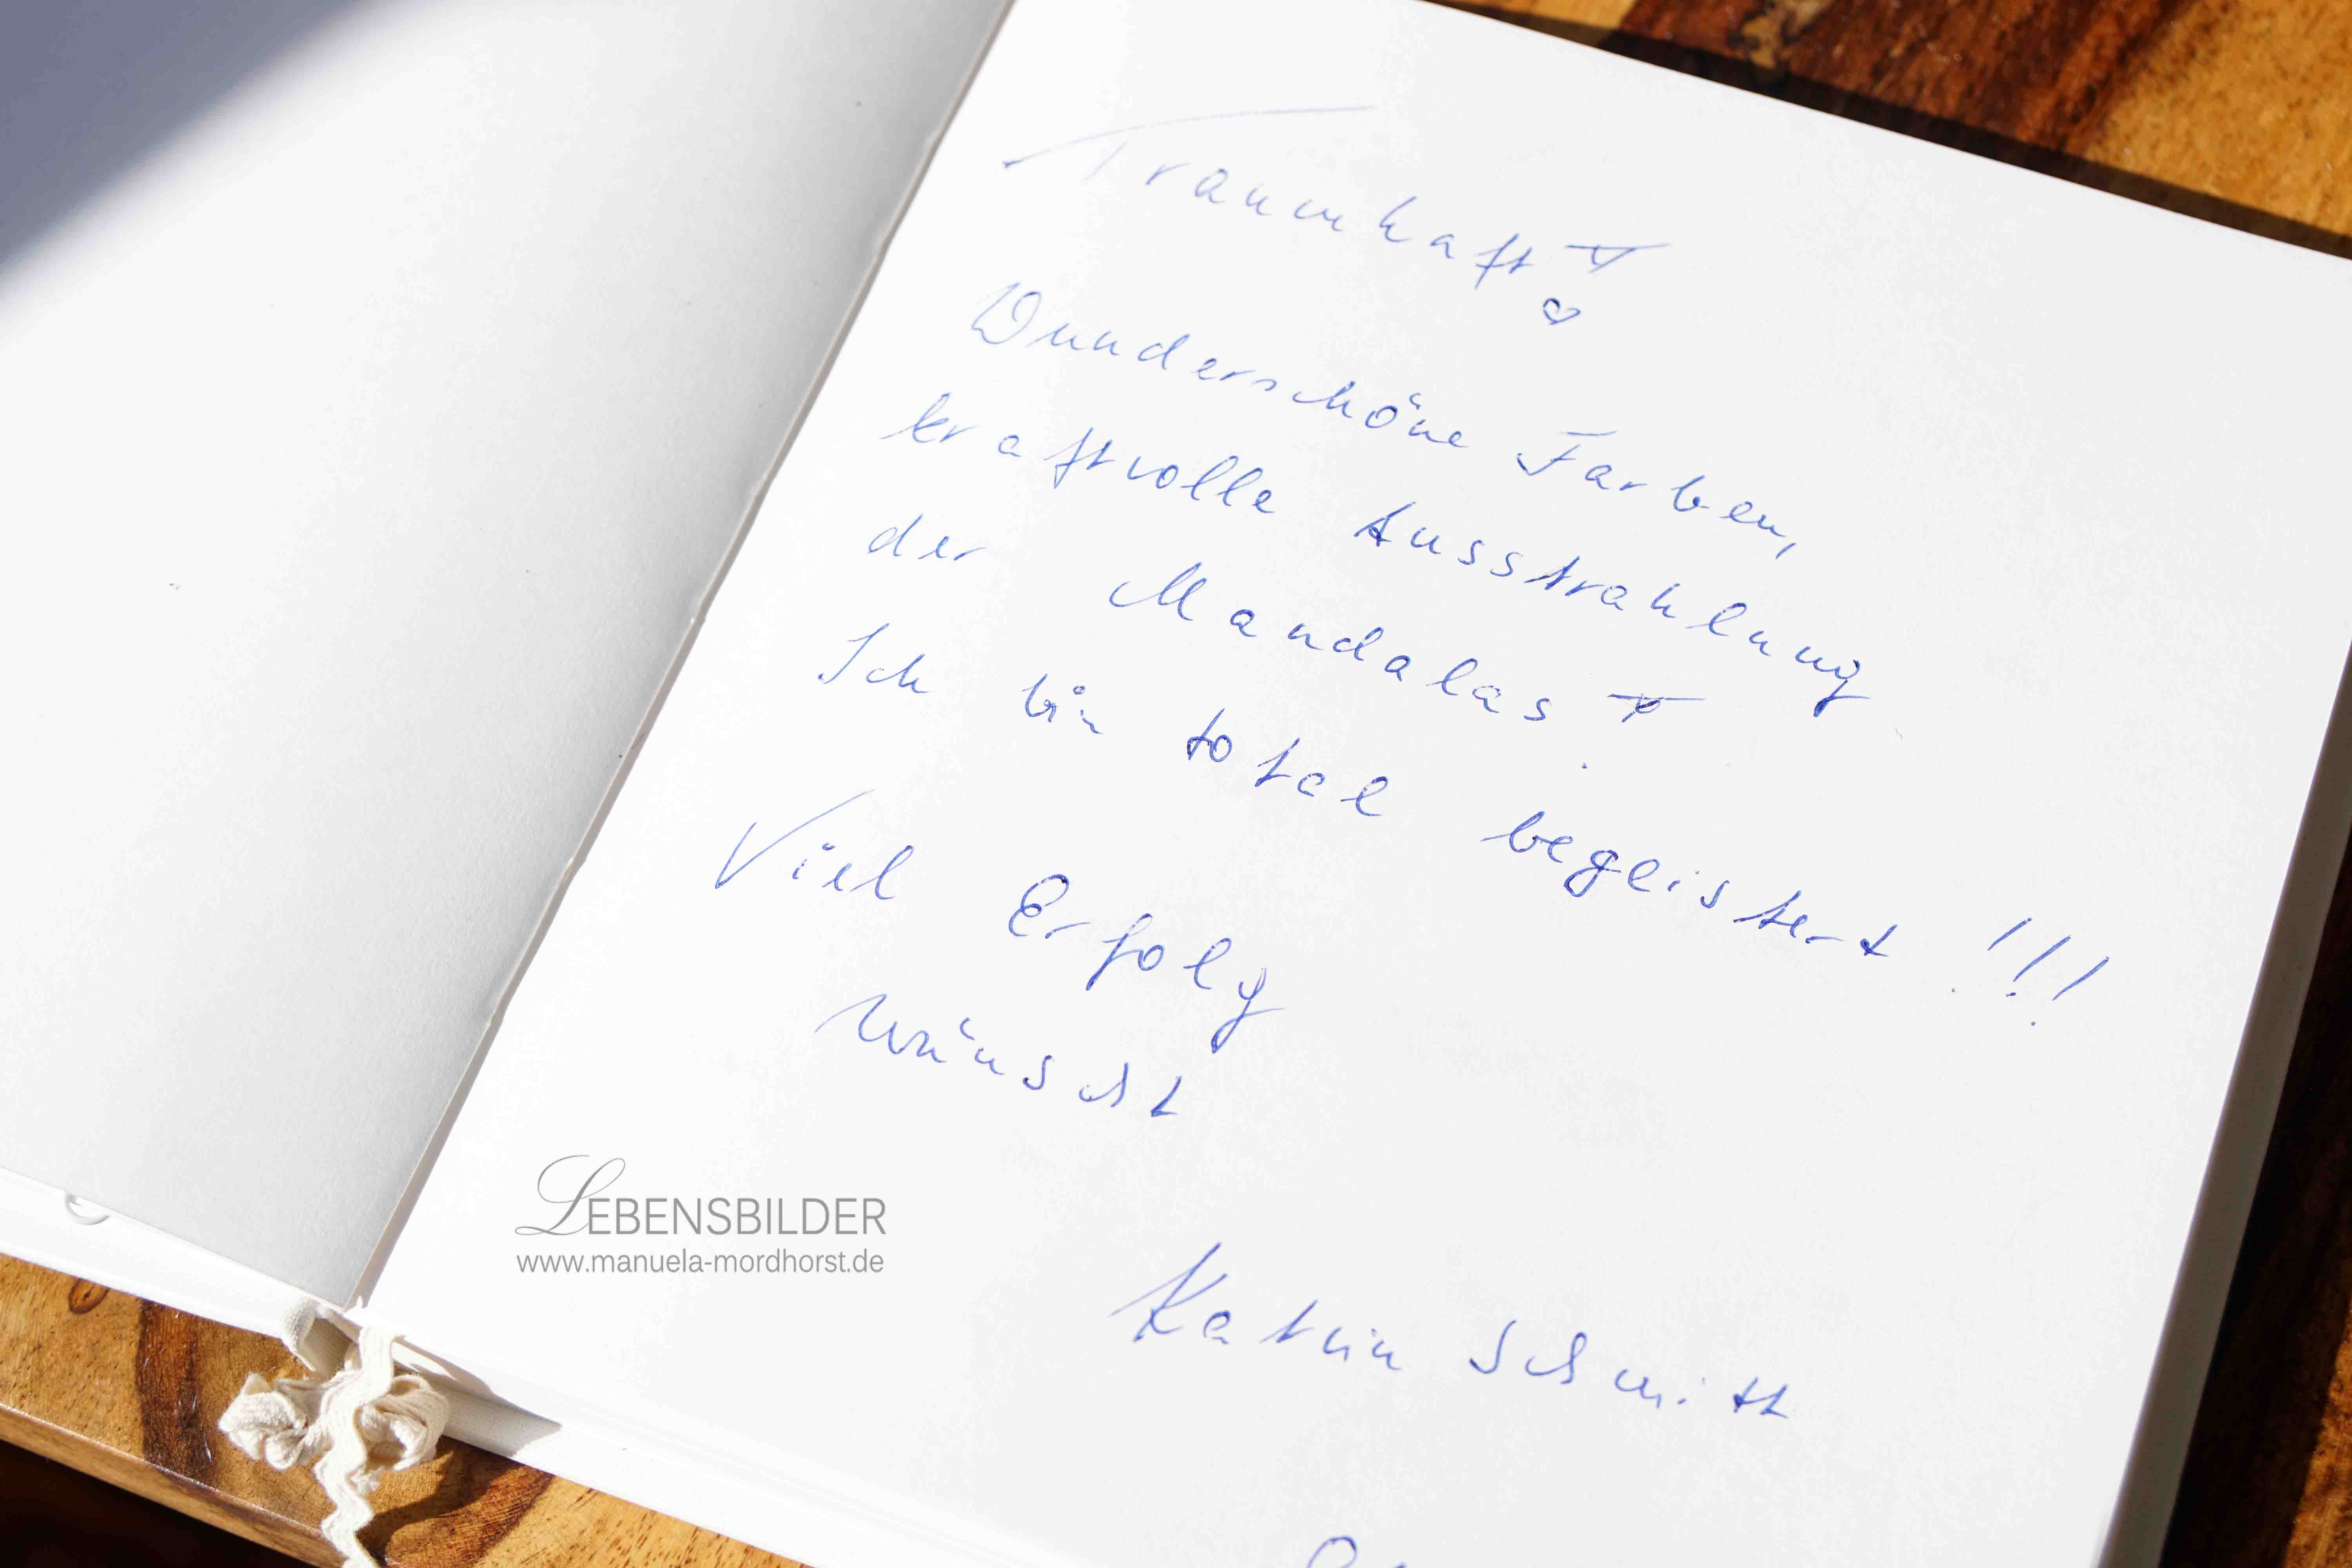 Traumhaft!
Wunderschöne Farben,
kraftvolle Ausstrahlung
der Mandalas!
Ich bin total begeistert !!!
Viel Erfolg
wünscht
Katrin Schmitt
LEBENSBILDER
www.manuela-mordhorst.de